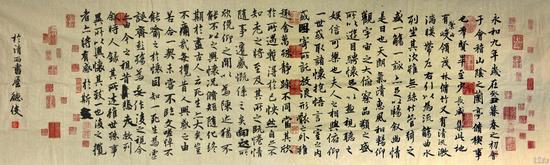 永和九年歲在癸丑暮春之初會
于會稽山陰之蘭亭脩禊事
也群賢畢至少長咸集此地
有崇山峻領茂林脩竹又有清流激
湍暎帶左右引以為流觴曲水
列坐其次雖無絲竹管弦之
盛一觴一詠亦足以暢敘幽情
是日也天朗氣清惠風和暢仰
觀宇宙之大俯察品類之盛
所以遊目騁懷足以極視聽之
娛信可樂也夫人之相與俯仰
一世或取諸懷抱悟言一室之內
或因寄所託放浪形骸之外雖
趣舍萬殊靜躁不同當其欣
於所遇暫得於己怏然自足不
知老之將至及其所之既倦情
隨事遷感慨係之矣向之所
欣俛仰之間以為陳迹猶不
能不以之興懷況脩短隨化終
期於盡古人云死生亦大矣豈
不痛哉每攬昔人興感之由
若合一契未嘗不臨文嗟悼不
能喻之於懷固知一死生為虛
誕齊彭殤為妄作後之視今
亦由今之視昔悲夫故列
敘時人錄其所述雖世殊事
異所以興懷其致一也後之攬
者亦將有感於斯文
於清西書屋